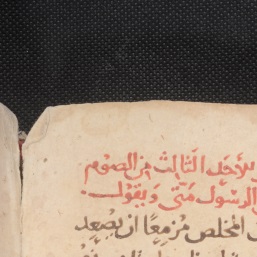 للأحَد الثَّالِث مِن الصَّوم
الرسُول مَتّى وَيقوُل.
المخلص مُزمِعًا ان يصْعِد